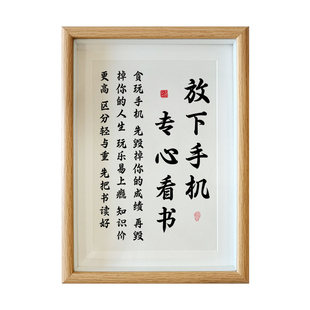 放下手机
专心看书
贪玩手机 先毁掉你的成绩 再毁
掉你的人生 玩乐易上瘾 知识价
更高 区分轻与重 先把书读好